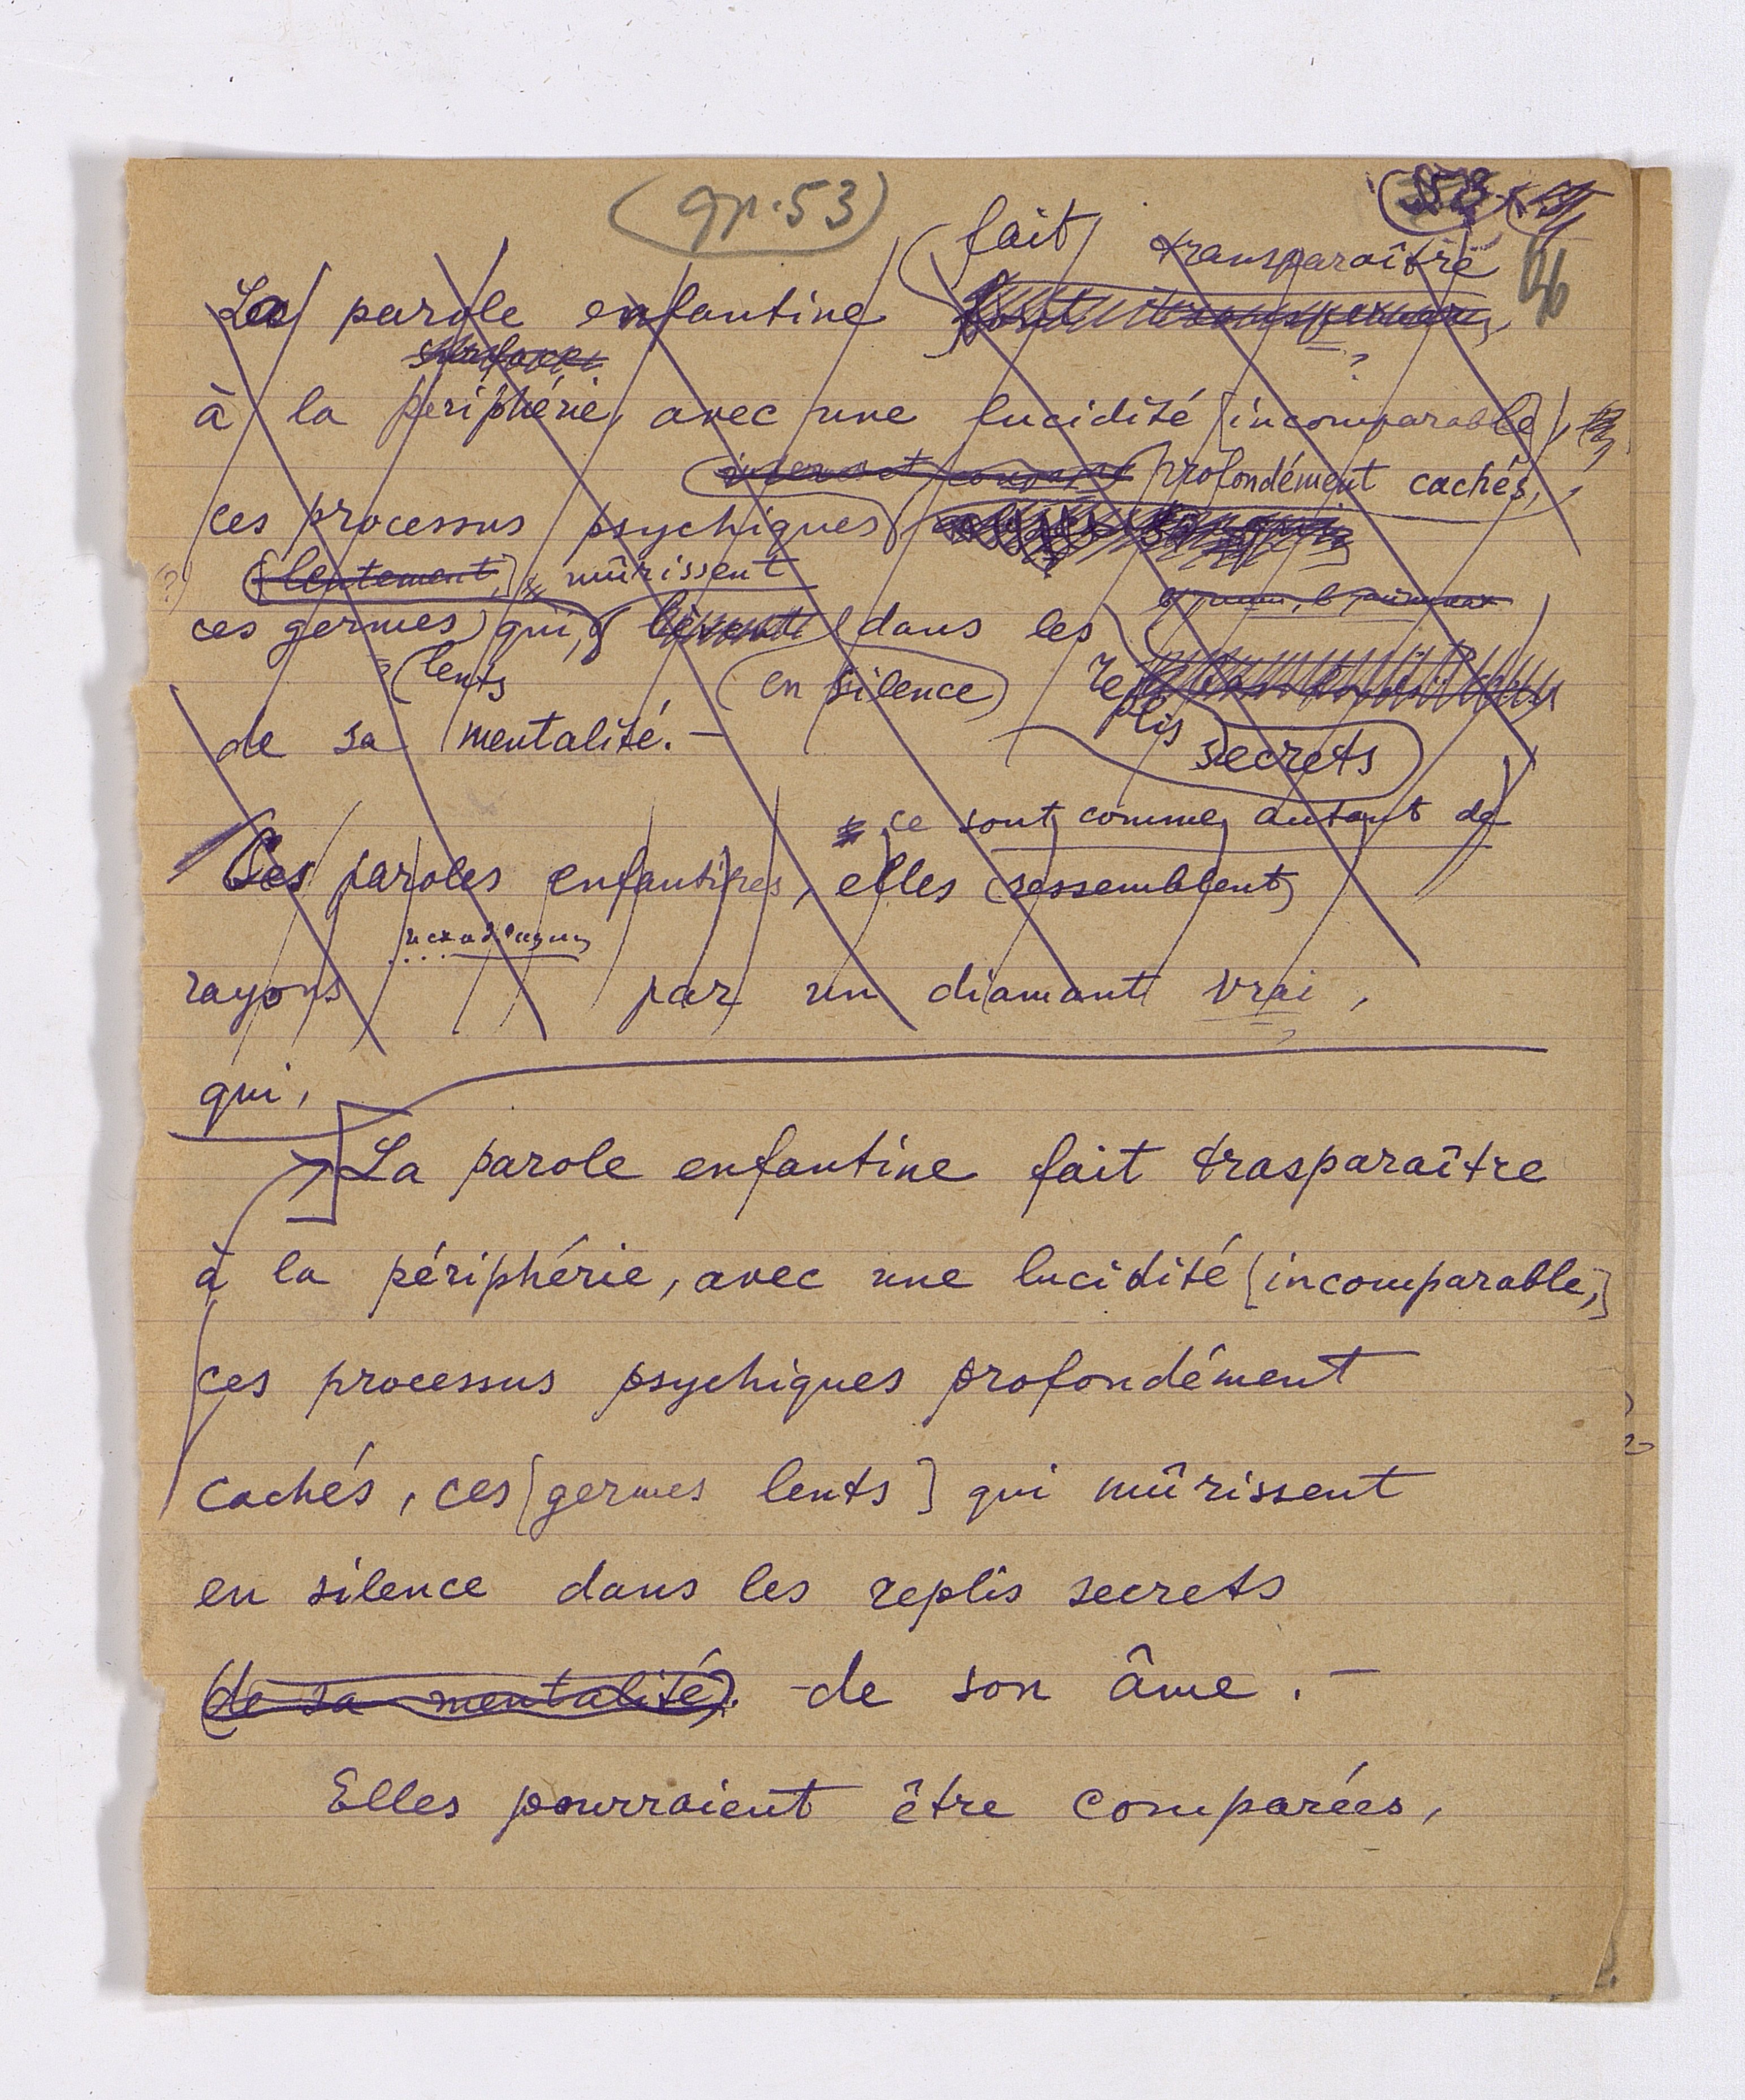 (фр. 53)
fait transparaître
La parole enfantine
à la périphérie, avec une lucidité [incomparable],
profondément cachés,
ces processus psychiques
[lentement,] mûrissent
ces germes qui, dans les
lents (en silence) replis
de sa mentalité. — secrets
ce sont, comme, autant de
Les paroles enfantines, elles (ressemblent)
rayons par un diamant vrai,
qui,
La parole enfantine fait trasparaître
à la périphérie, avec une lucidité [incomparable,]
ces processus psychiques profondément
cachés, ces [germes lents] qui mûrissent
en silence dans les replis secrets
(de sa mentalité). de son âme. —
Elles pourraient être comparées,